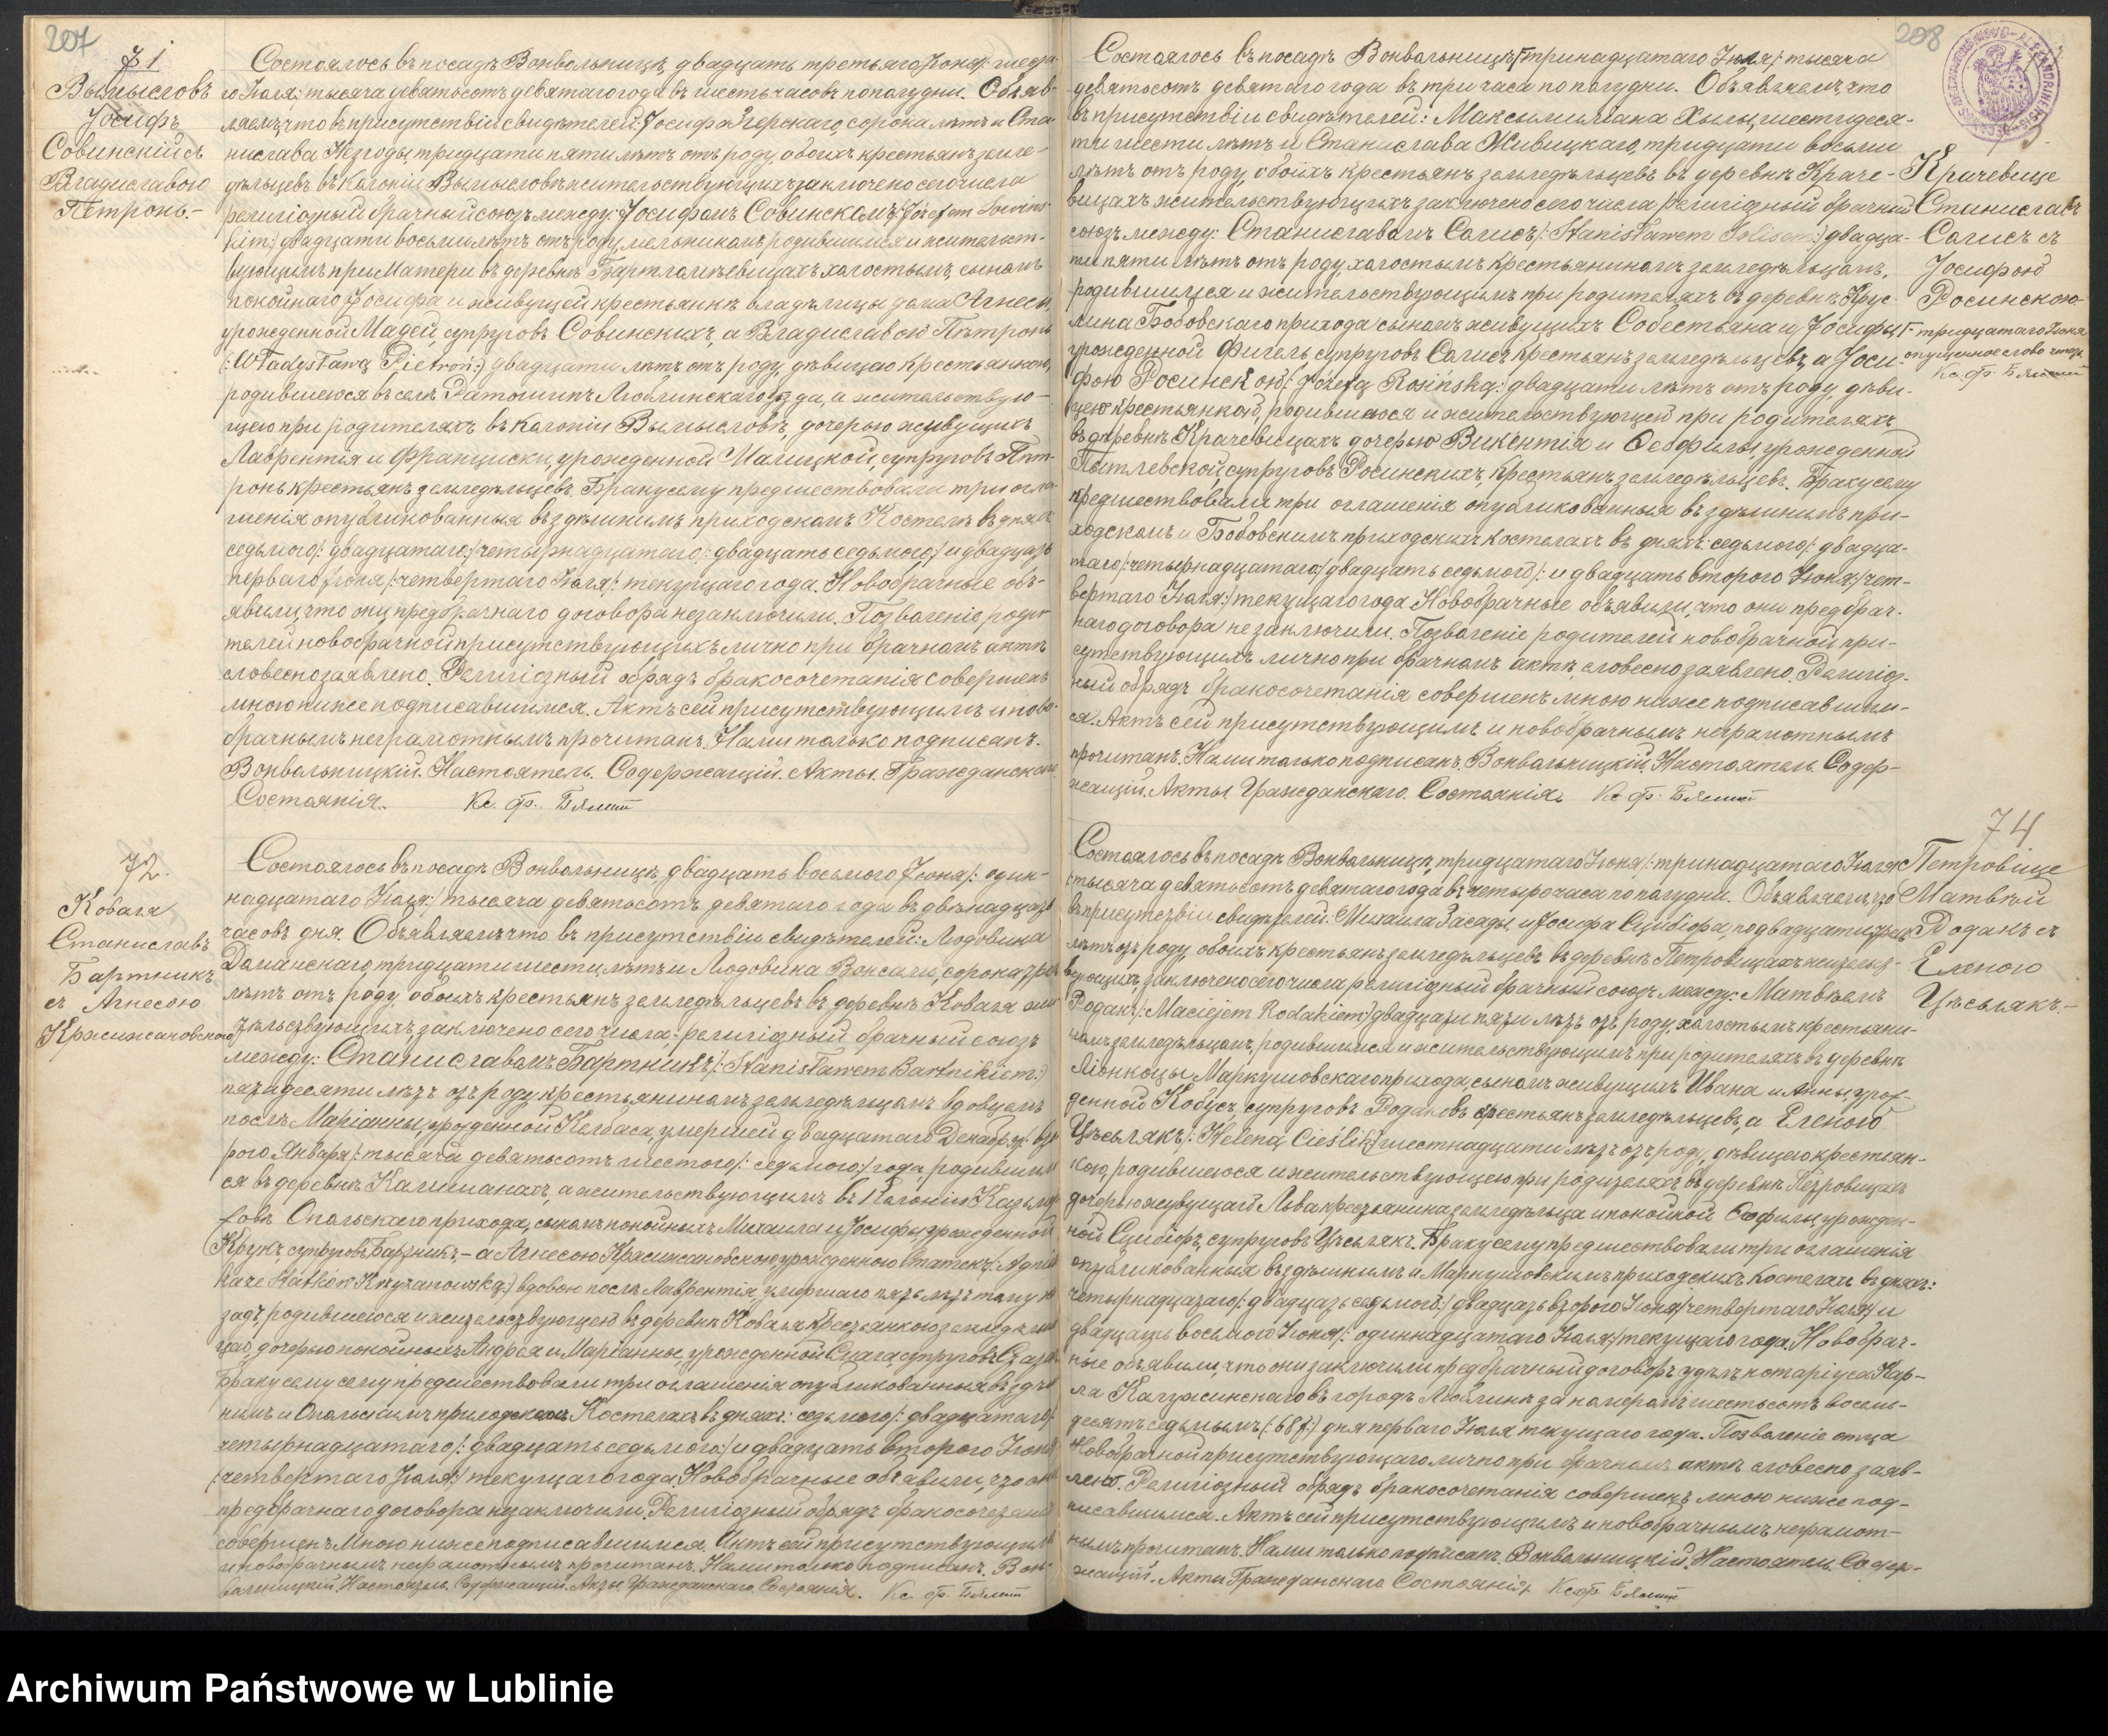 207
71
Вымысловъ
Іосифъ
Совинскій съ
Владиславою
Петронь.-
Состоялось въ посадѣ Вонвольницѣ, двадцать третьяго Іюня /: шеста-
го Іюля :/ тысяча девятьсотъ девятаго года въ шесть часовъ пополудни. Объяв-
ляемъ, что въ присутствіи свидѣтелей: Іосифа Згерскаго, сорока лѣтъ и Ста-
нислава Незгоды, тридцати пяти лѣтъ отъ роду, обоихъ крестьянъ земле-
дѣльцевъ въ Колоніи Вымысловѣ жительствующихъ заключено сего числа
религіозный брачный союзъ между: Іосифомъ Совинскомъ /: Józefem Sowins-
kim :/ двадцати восьми лѣтъ отъ роду, мельникомъ, родившимся и жительст-
вующимъ при Матери въ деревнѣ Бартломѣевицахъ холостымъ, сыномъ
покойнаго Іосифа и живущей крестьянкѣ владѣлицы дома Агнесы,
урожденной Мадей, супруговъ Совинскихъ, а Владиславою Пѣтронь
/: Władysławą Pietroń :/ двадцати лѣтъ отъ роду, дѣвицею крестьянкою,
родившеюся въ селѣ Ратошинъ Люблинскаго уѣзда, а жительствую-
щею при родителяхъ въ Колоніи Вымысловъ, дочерью живущихъ
Лаврентія и Франциски, урожденной Малицкой, супруговъ Пѣт-
ронь крестьянъ земледѣльцевъ. Браку сему предшествовали три огла-
шенія опубликованныя въ здѣшнимъ приходскомъ Костелѣ въ дняхъ
седьмого /: двадцатаго :/ четырнадцатаго /: двадцать седьмого :/ и двадцать
перваго Іюня /: четвертаго Іюля :/ текущаго года. Новобрачные объ-
явили, что они предбрачнаго договора незаключили. Позволеніе роди-
телей новобрачной присутствующихъ лично при брачномъ актѣ
словесно заявлено. Религіозный обрядъ бракосочетанія совершенъ
мною ниже подписавшимся. Актъ сей присутствующимъ и ново-
брачнымъ неграмотнымъ прочитанъ, Нами только подписанъ.
Вонвольницкій. Настоятель. Содержащій. Акты. Гражданскаго
Состоянія. Кс. Ф.
72.
Коваля
Станиславъ
Бартникъ
съ Агнесою
Кржижановскою
Состоялось въ посадѣ Вонвольницѣ, двадцать восьмого Іюня /: один-
надцатаго Іюля :/ тысяча девятьсотъ девятаго года въ двѣнадцать
часовъ дня. Объявляемъ, что въ присутствіи свидѣтелей: Людовика
Доманскаго, тридцати шести лѣтъ и Людовика Вонсали, сорока трехъ
лѣтъ отъ роду обоихъ крестьянъ земледѣльцевъ въ деревнѣ Коваля жи-
тельствующихъ, заключено сего числа религіозный брачный союзъ
между: Станиславомъ Бартникъ /: Stanisławem Bartnikiem :/
пятидесяти лѣтъ отъ роду, крестьяниномъ земледѣльцомъ вдовцомъ
послѣ Маріанны, урожденной Келбаса, умершей двадцатаго Декабря /: вто-
рого Января :/ тысяча девятьсотъ шестого /: седьмого :/ года, родившим-
ся въ деревнѣ Калишанахъ, а жительствующимъ въ Колоніи Казьми-
ровъ Опольскаго прихода, сыномъ покойныхъ Михаила и Іосифы, урожденной
Крукъ, супруговъ Бартникъ,- а Агнесою Кржижановскою, урожденною Статекъ /: Agnie-
вдовою послѣ Лаврентія, умершаго пять лѣтъ тому на-
задъ, родившеюся и жительствующею въ деревнѣ Коваля крестьянкою земледѣли-
цею, дочерью покойныхъ Андрея и Маріанны, урожденной супруговъ
Браку сему сему предшествовали три оглашенія опубликованныя въ здѣш-
нимъ и Опольскимъ приходскомъ Костелахъ въ дняхъ: седьмого /: двадцатаго :/
четырнадцатаго /: двадцать седьмого :/ и двадцать второго Іюня
/: четвертаго Іюля :/ текущаго года. Новобрачные объявили, что они
предбрачнаго договора незаключили. Религіозный обрядъ бракосочетанія
совершенъ Мною ниже подписавшимся. Актъ сей присутствующимъ
и новобрачнымъ неграмотнымъ прочитанъ. Нами только подписанъ. Вон-
вольницкій. Настоятель. Содержащій. Акты. Гражданскаго. Состоянія. Кс. Ф.
208
73.
Крачевице
Станиславъ
Солисъ съ
Іосифою
Росинскою
тридцатаго Іюня
опущенное слово
Кс. Ф.
Состоялось въ посадѣ Вонвольницѣ, тринадцатаго Іюля :/ тысяча
девятьсотъ девятаго года въ три часа по полудни. Объявляемъ, что
въ присутствіи свидѣтелей: Максымиліана Хылы, шестидеся-
ти шести лѣтъ и Станислава Живицкаго, тридцати восьми
лѣтъ отъ роду, обоихъ крестьянъ земледѣльцевъ въ деревнѣ Краче-
вицахъ жительствующихъ заключено сего числа религіозный брачный
союзъ между: Станиславомъ Солисъ /: Stanisławem Solisem :/ двадца-
ти пяти лѣтъ отъ роду, холостымъ крестьяниномъ земледѣльцомъ,
родившимся и жительствующимъ при родителяхъ въ деревнѣ Крус-
лина Бобовскаго прихода сыномъ живущихъ Собестьяна и Іосифы,
урожденной Фигель, супруговъ Солисъ крестьянъ земледѣльцевъ, а Іоси-
фою Росинской /: Józefą Rosińską :/ двадцати лѣтъ отъ роду, дѣви-
цею крестьянкой, родившеюся и жительствующей при родителяхъ
въ деревнѣ Крачевицахъ дочерью Викентія и Ѳеофилы, урожденной
Пытлевской, супруговъ Росинскихъ, крестьянъ земледѣльцевъ. Браку сему
предшествовали три оглашенія опубликованныя въ здѣшнимъ при-
ходскомъ и Бобовскимъ приходскихъ костелахъ въ дняхъ: седьмого /: двадца-
таго :/ четырнадцатаго /: двадцать седьмого :/ и двадцать второго Іюня /: чет-
вертаго Іюля :/ текущаго года. Новобрачные объявили, что они предбрач-
наго договора не заключили. Позволеніе родителей новобрачной при-
сутствующихъ лично при брачномъ актѣ, словесно заявлено. Религіоз-
ный обрядъ бракосочетанія совершенъ мною ниже подписавшим-
ся. Актъ сей присутствующимъ и новобрачнымъ неграмотнымъ
прочитанъ. Нами только подписанъ. Вонвольницкій. Настоятель. Содер-
жащій. Акты. Гражданскаго. Состоянія. Кс. Ф.
74
Петровице
Матвѣй
Роданъ съ
Еленою
Цѣслякъ.-
Состоялось въ посадѣ Вонвольницѣ, тридцатаго Іюня /: тринадцатаго Іюля
:/ тысяча девятьсотъ девятаго года въ четыре часа по полудни. Объявляемъ, что
въ присутствіи свидѣтелей: Михаила Засады, и Іосифа Сцибіора, по двадцати
лѣтъ отъ роду, обоихъ крестьянъ земледѣльцевъ въ деревнѣ Петровицахъ жительст-
вующихъ, заключено сего числа религіозный брачный союзъ между: Матвѣемъ
Роданъ /: Maciejem Rodakiem :/ двадцати пяти лѣтъ отъ роду, холостымъ крестьяни-
номъ земледѣльцомъ, родившимся и жительствующимъ при родителяхъ въ деревнѣ
Маркушовскаго прихода, сыномъ живущихъ Ивана и Анны, урож-
денной Кобусъ, супруговъ Родаковъ крестьянъ земледѣльцевъ, а Еленою
Цѣслякъ /: Heleną Cieślik :/ шестнадцати лѣтъ отъ роду, дѣвицею крестьян-
кою, родившеюся и жительствующею при родителяхъ въ деревнѣ Петровицахъ
дочерью живущаго Льва крестьянина земледѣльца и покойной Ѳеофилы, урожден-
ной Сцибіоръ, супруговъ Цѣслякъ. Браку сему предшествовали три оглашенія
опубликованныя въ здѣшнимъ и Маркушовскимъ приходскихъ костелахъ въ дняхъ:
четырнадцатаго /: двадцать седьмого :/ двадцать второго Іюня /: четвертаго Іюля :/ и
двадцать восьмого Іюня /: одиннадцатаго Іюля :/ текущаго года. Новобрач-
ные объявили, что они заключили предбрачный договоръ у нотаріуса Кар-
ла въ городѣ Люблинѣ за номеромъ шестьсотъ восемь-
десятъ седьмымъ /: 687 :/ дня перваго Іюля текущаго года. Позволеніе отца
Новобрачной присутствующаго лично при брачномъ актѣ словесно заяв-
лено. Религіозный обрядъ бракосочетанія совершенъ мною ниже под-
писавшимся. Актъ сей присутствующимъ и новобрачнымъ неграмот-
нымъ прочитанъ. Нами только подписанъ. Вонвольницкій. Настоятель. Содер-
жащій. Акты Гражданскаго Состоянія. Кс. Ф.
Archiwum Państwowe w Lublinie